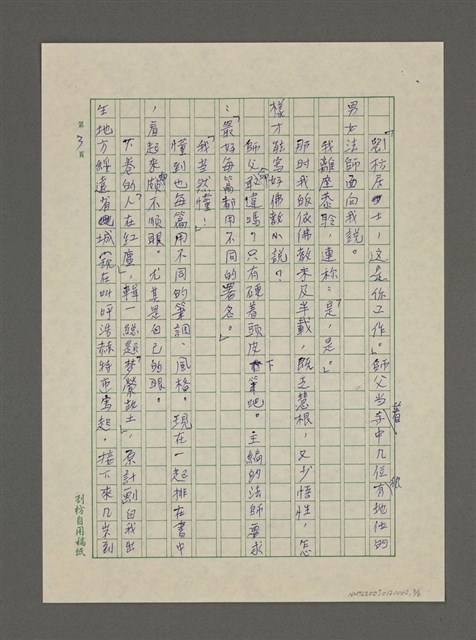 「劉枋居士,這是你工作。」師父當著寺中幾位有地位的
男女法師面向我說。
我離座恭聆,連称:「是,是。」
那时我的依佛教未及半載,既乏慧根,又少悟性,怎
樣才能寫好佛教小說?
師父敢違嗎?只有硬着頭皮下筆吧。主編的法師要求
:「最好每篇都用不同的署名。」
「我当然懂。」
懂到也每篇用不同的筆調、風格。現在一起排在書中
,看起來頗不順眼。尤其是自己的眼。
下卷的「人在紅塵」,輯一總題「夢縈故土」,原計劃由我出
生地方綏遠省城(現在叫呼浩赫特市寫起。接下來几岁到
第3頁
劉枋自用稿紙